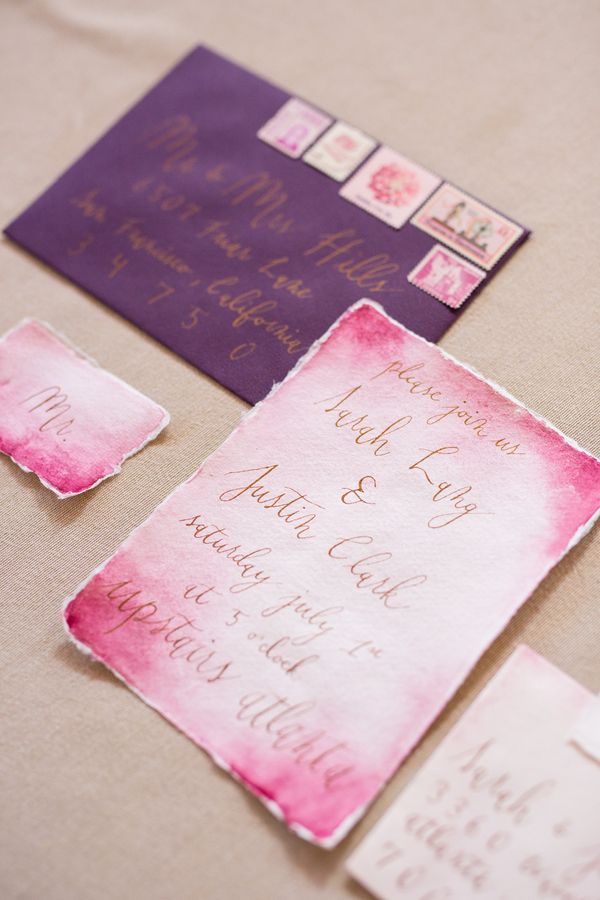 Mr & Mrs Hills
6507 Friar Lane
San Francisco, California
34750
Mr.
please join us
Sarah Lang
&
Justin Clark
saturday july 1st
at 5 o'clock
upstairs atlanta
Sarah &
3360
atlanta
70